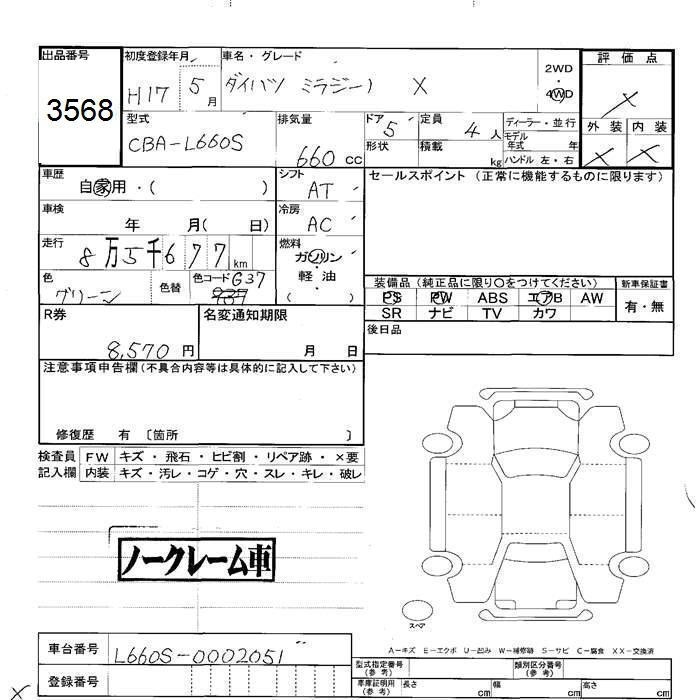 出品番号 初度登録年月 車名・グレード 2WD 評価点
3568 H17 5月 ダイハツ ミラジーノ X 4WD ×
型式 排気量 ドア 定員 ディーラー・並行 外装 内装
CBA-L660S 660cc 5 4人 モデル年式 年 × ×
形状 積載 kg ハンドル 左・右
車歴 シフト セールスポイント (正常に機能するものに限ります)
自家用・( ) AT
車検 冷房
年 月( 日) AC
走行 燃料
8万5千677km ガソリン
色 色替 色コード G37 軽油
グリーン ( ) 装備品(純正品に限り○をつけてください) 新車保証書
PS PW ABS エアB AW 有・無
R券 名変通知期限 SR ナビ TV カワ
8,570円 月 日 後日品
注意事項申告欄(不具合内容等は具体的に記入して下さい)
修復歴 有 〔箇所 〕
検査員 FW キズ・飛石・ヒビ割・リペア跡・×要
記入欄 内装 キズ・汚レ・コゲ・穴・スレ・キレ・破レ
ノークレーム車
スペア
A-キズ E-エクボ U-凹み W-補修跡 S-サビ C-腐食 XX-交換済
車台番号 L660S-0002051 型式指定番号(参考) 類別区分番号(参考)
登録番号 車庫証明用(参考) 長さ cm 幅 cm 高さ cm
×